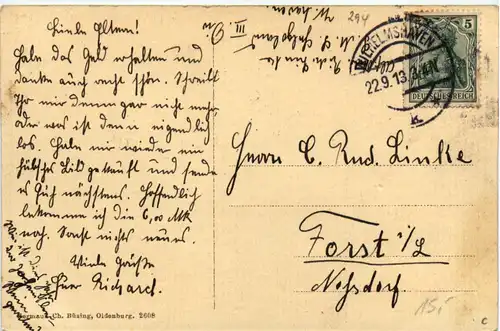 Liebe Eltern!
Habe das Geld erhalten und
danke auch recht schön. Schreibt
Ihr mir denn gar nicht mehr,
oder was ist denn eigendlich
los. Habe mir wieder ein
hübsches Bild gekauft und sende
es Euch nächstens. Hoffentlich
bekomme ich die 6,00 Mk
noch. Sonst nichts neues.
Viele Grüße
Euer Richard.
Wie ist
Herrn C. Rud. Linke
Forst i/L
Noßdorf
WILHELMSHAVEN
22.9.13.
5
DEUTSCHES REICH
294
III
S.M.S. Helgoland
W.haven
Ch. Büzing, Oldenburg. 2608
15,-
c